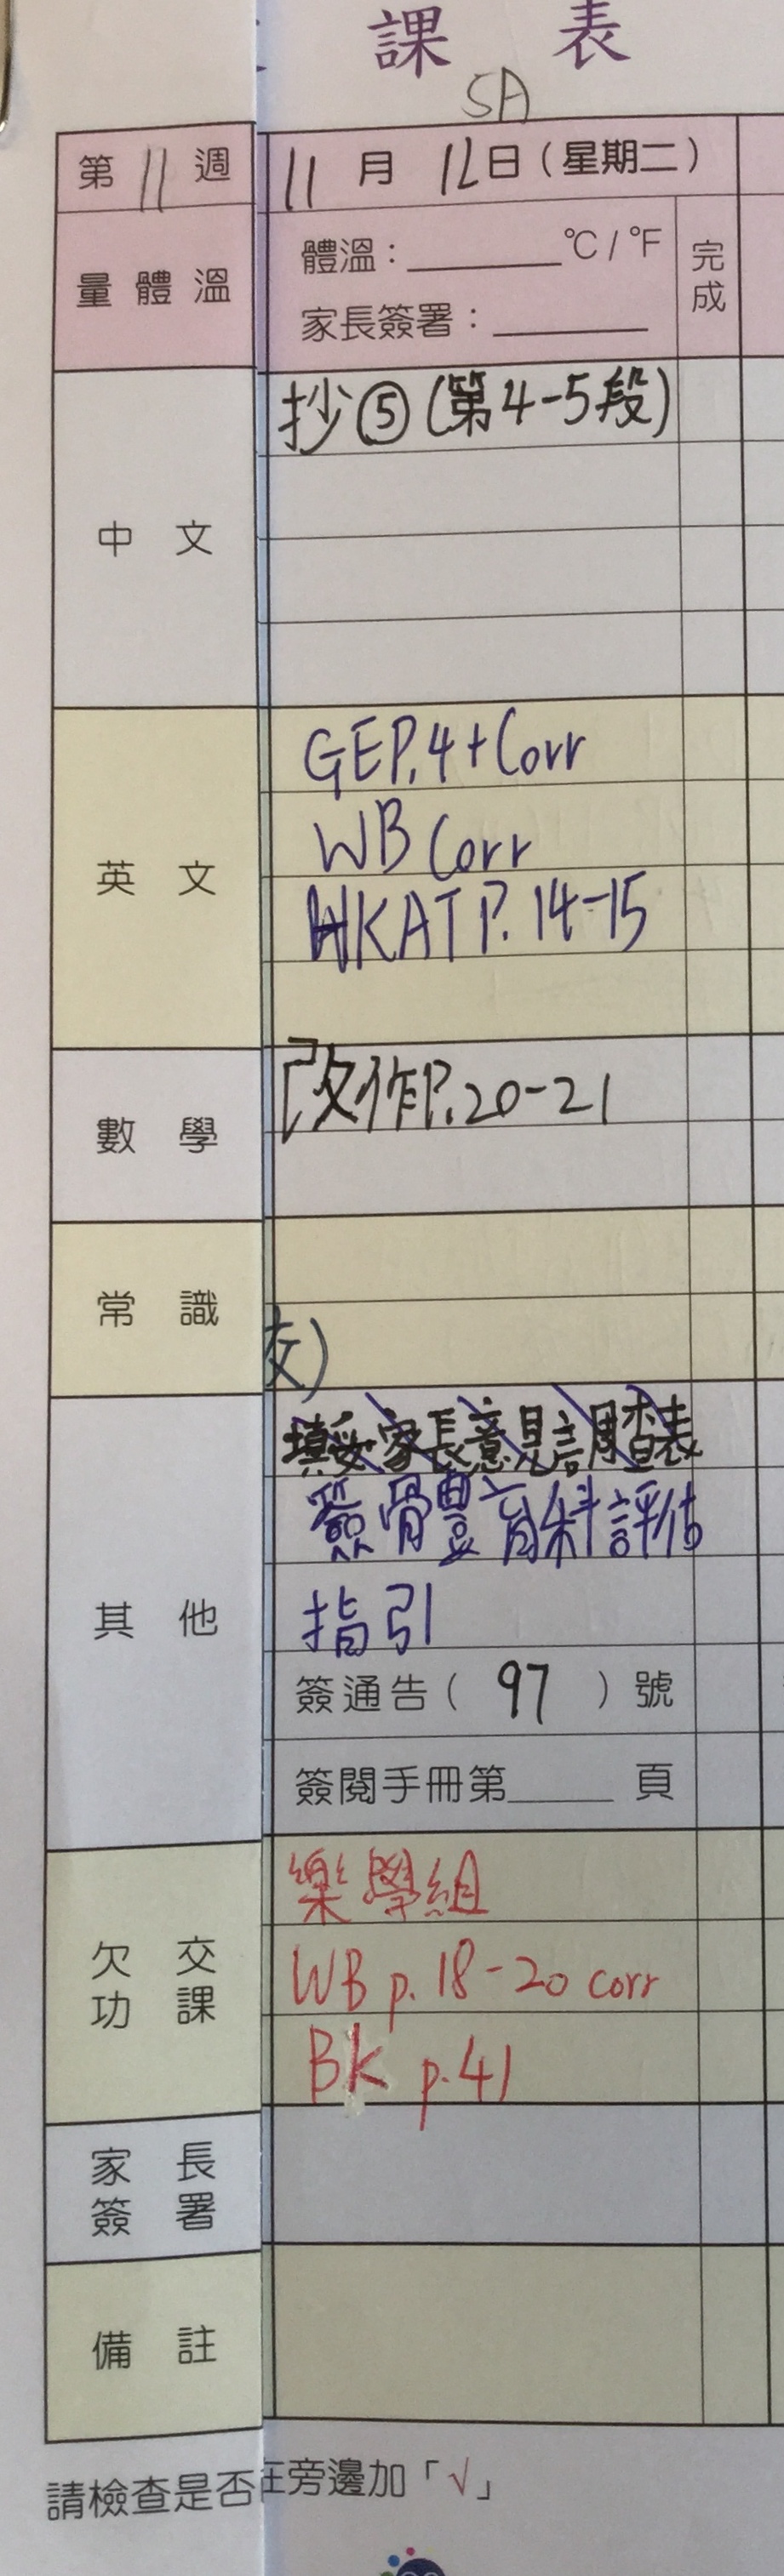 課 表
5A
第 11 週 11 月 12 日（星期二）
量 體 溫
體溫：______°C / °F
家長簽署：______
完成
中 文
抄⑤(第4-5段)
英 文
GE P.4 + Corr
WB Corr
HKAT P. 14-15
數 學
改作P.20-21
常 識
交)
其 他
填妥家長意見調查表
簽體育科評估
指引
簽通告（ 97 ）號
簽閱手冊第______ 頁
欠 交
功 課
樂學組
WB p. 18-20 corr
BK p.41
家 長
簽 署
備 註
請檢查是否在旁邊加「√」